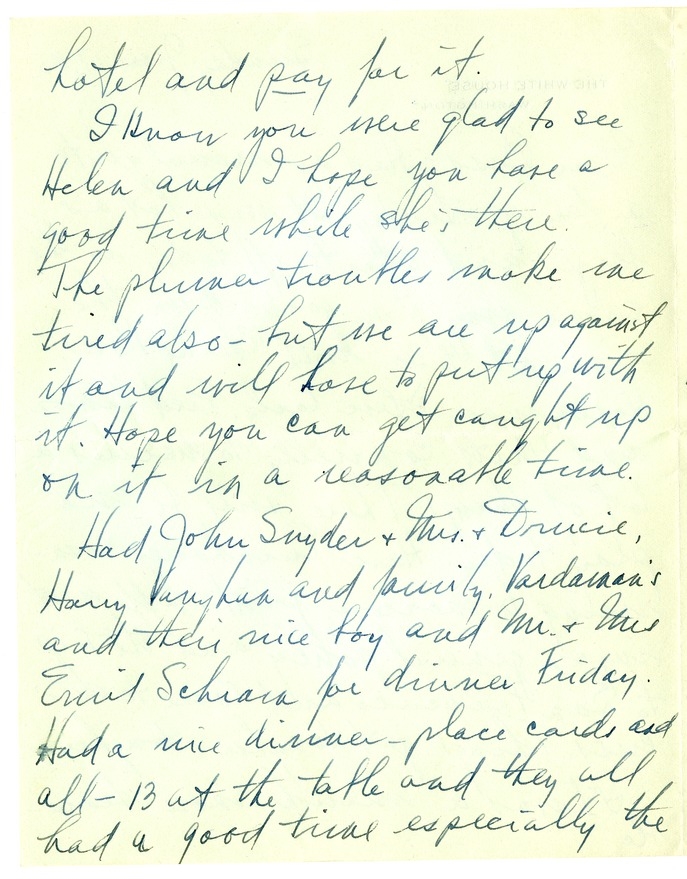 hotel and pay for it.
I know you were glad to see
Helen and I hope you have a
good time while she's there.
The plumer troubles make me
tired also - but we are up against
it and will have to put up with
it. Hope you can get caught up
on it in a reasonable time.
Had John Snyder + Mrs. + Drucie,
Harry Vaughan and family, Vardaman's
and their nice boy and Mr. + Mrs
Emil Schram for dinner Friday.
Had a nice dinner - place cards and
all - 13 at the table and they all
had a good time especially the